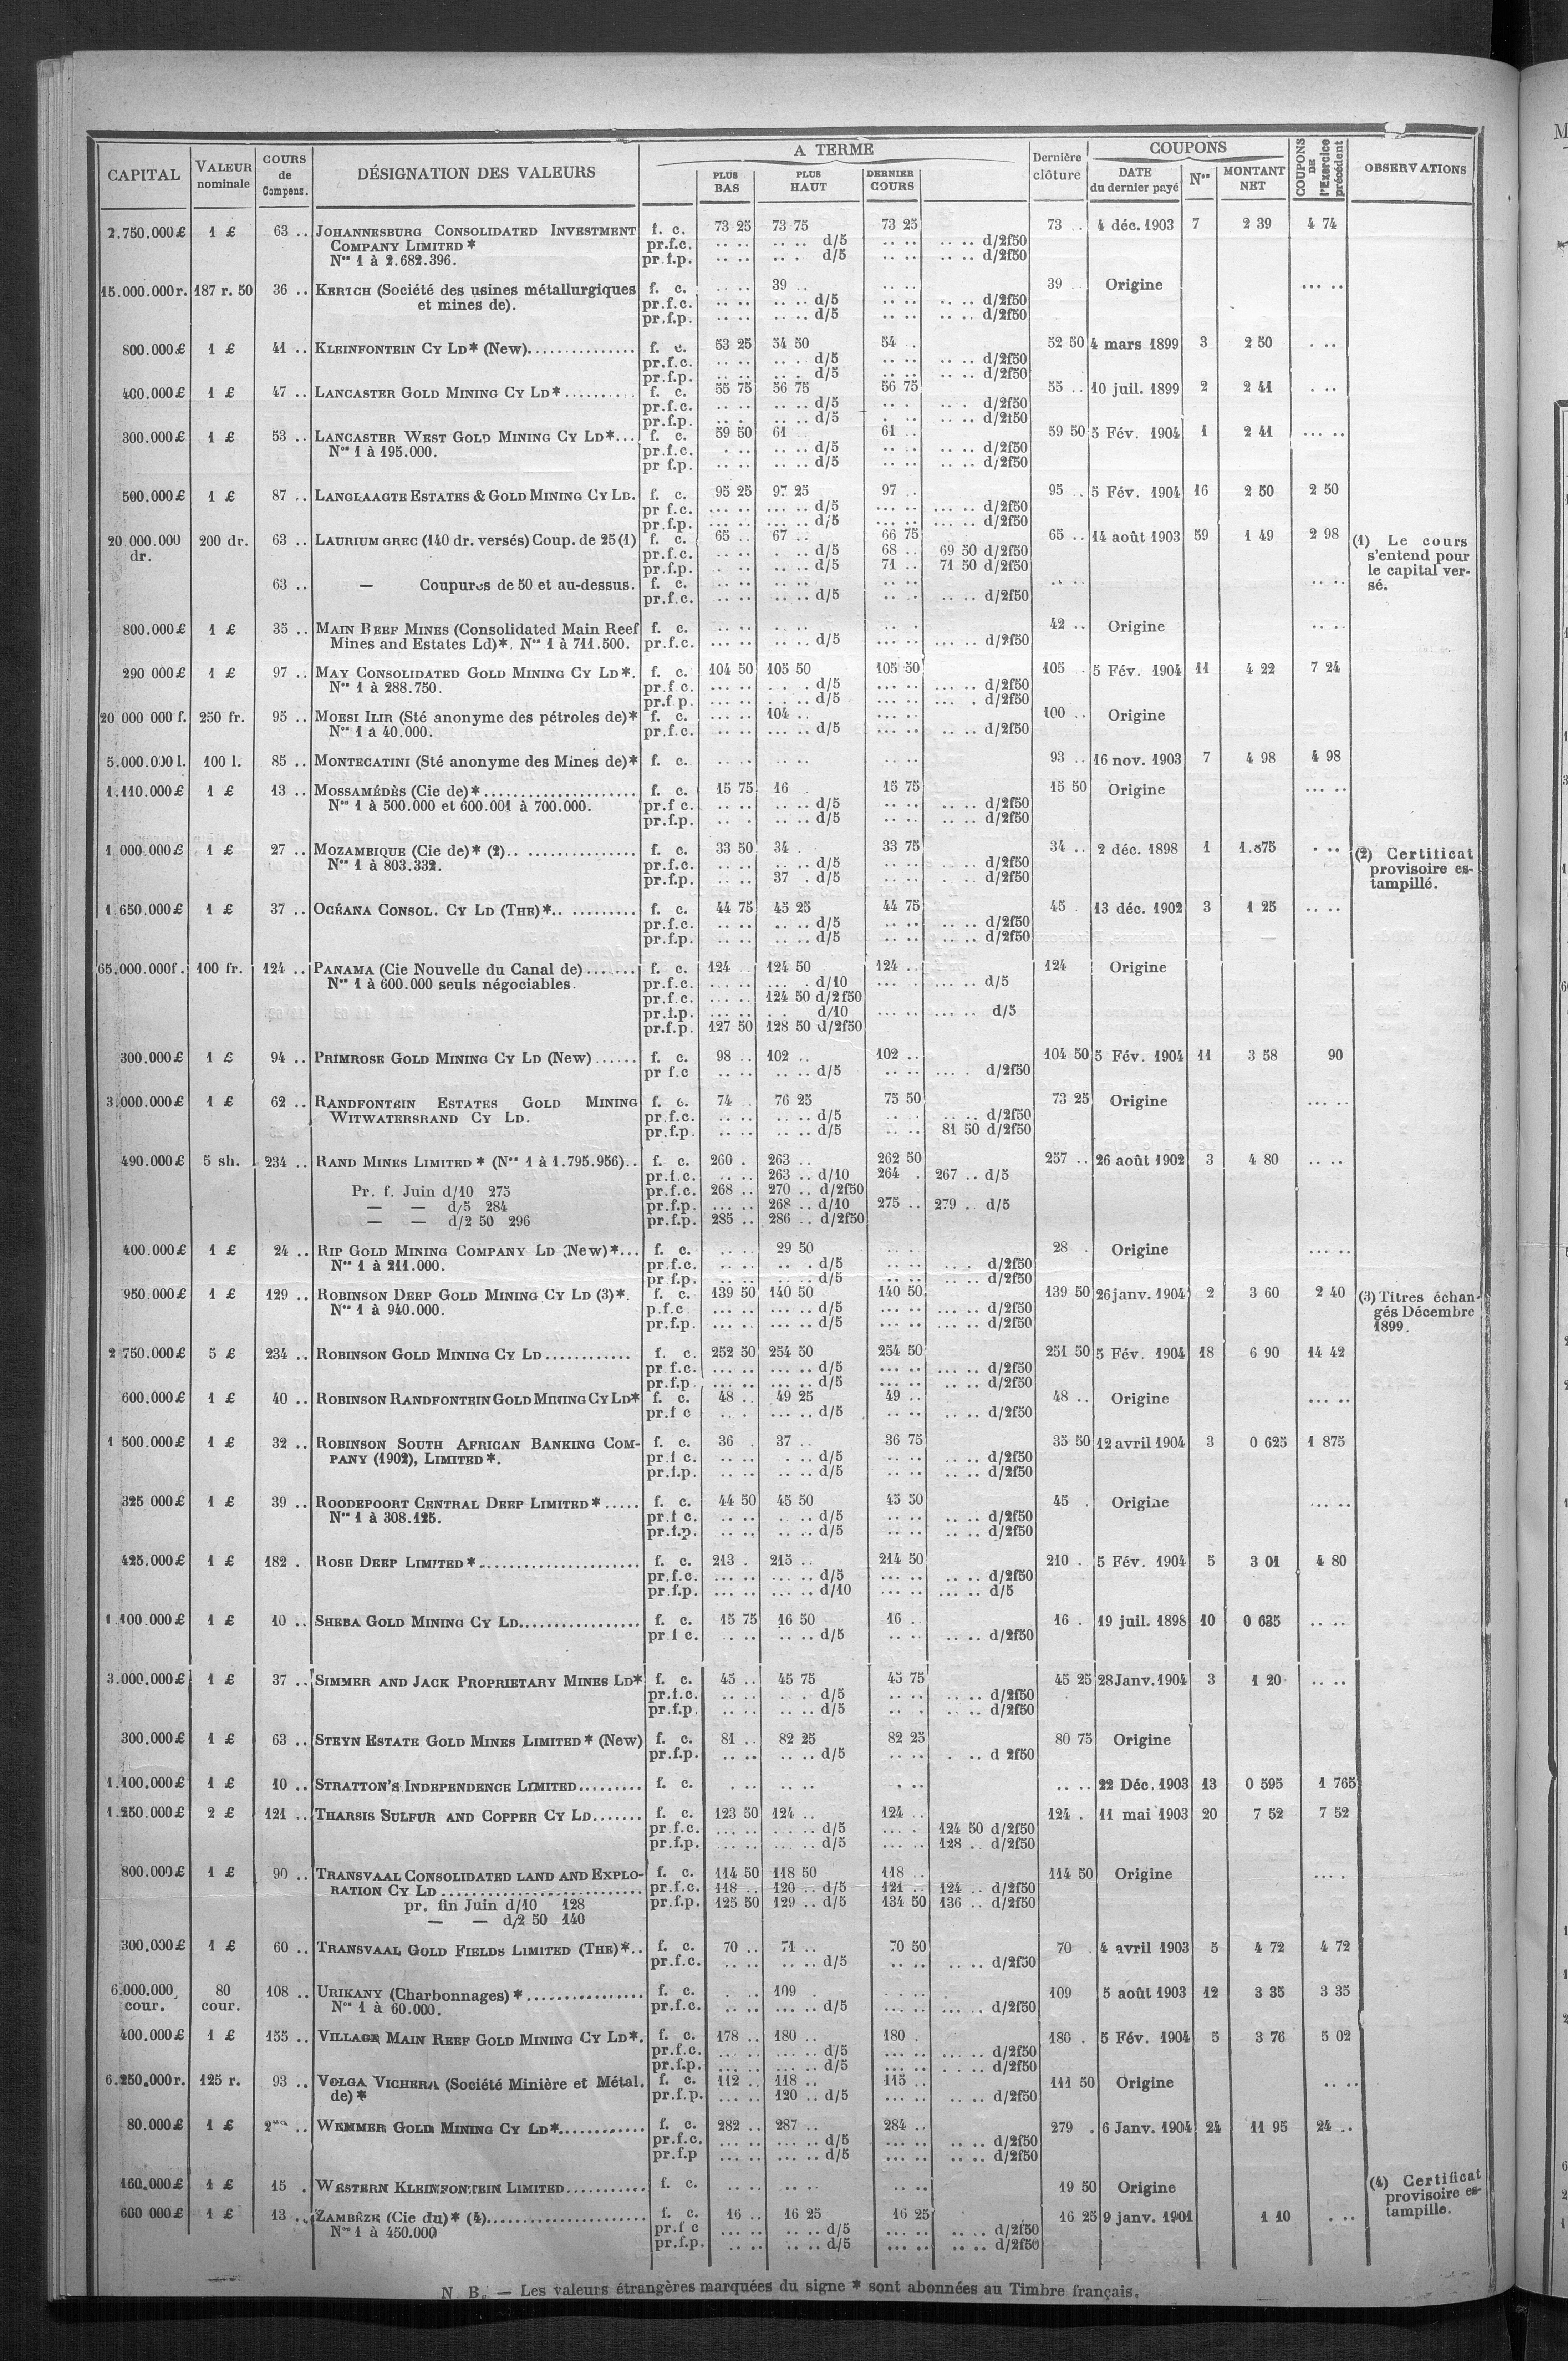 CAPITAL VALEUR nominale COURS de Compens. DÉSIGNATION DES VALEURS A TERME PLUS BAS PLUS HAUT DERNIER COURS Dernière clôture COUPONS DATE du dernier payé Nos MONTANT NET COUPONS DE l'Exercice précédent OBSERVATIONS
2.750.000£ 1 £ 63 .. JOHANNESBURG CONSOLIDATED INVESTMENT f. c. 73 25 73 75 73 25 73 .. 4 déc. 1903 7 2 39 4 74
COMPANY LIMITED * pr.f.c. .. .. .. .. d/5 .. .. .. .. d/2f50
Nos 1 à 2.682.396. pr.f.p. .. .. .. . d/5 .. .. .. .. d/2f50
15.000.000r. 187 r. 50 36 .. KERTCH (Société des usines métallurgiques f. c. .. .. 39 .. .. .. 39 .. Origine ... ..
et mines de). pr.f.c. .. .. .. .. d/5 .. .. .. .. d/2f50
pr.f.p. .. .. .. .. d/5 .. .. .. .. d/2f50
800.000£ 1 £ 41 .. KLEINFONTEIN CY LD* (New)............... f. c. 53 25 54 50 54 . 52 50 4 mars 1899 3 2 50 . ..
pr.f.c. .. .. .. . d/5 .. .. .. .. d/2f50
pr.f.p. .. .. .. . d/5 .. .. .. .. d/2f50
400.000£ 1 £ 47 .. LANCASTER GOLD MINING CY LD*.......... f. c. 55 75 56 75 56 75 55 .. 10 juil. 1899 2 2 41 . ..
pr.f.c. .. .. .. .. d/5 .. . .. . d/2f50
pr.f.p. .. . .. .. d/5 . .. .. .. d/2f50
300.000£ 1 £ 53 .. LANCASTER WEST GOLD MINING CY LD*... f. c. 59 50 61 .. 61 .. 59 50 5 Fév. 1904 1 2 41 ... ..
Nos 1 à 195.000. pr.f.c. . .. .. .. d/5 .. . .. .. d/2f50
pr f.p. .. .. .. .. d/5 .. .. .. .. d/2f50
500.000£ 1 £ 87 .. LANGLAAGTE ESTATES & GOLD MINING CY LD. f. c. 95 25 97 25 97 .. 95 .. 5 Fév. 1904 16 2 50 2 50
pr f.c. ... .. ... .. d/5 ... .. ... .. d/2f50
pr.f.p. ... .. ... .. d/5 ... .. ... .. d/2f50
20.000.000 200 dr. 63 .. LAURIUM GREC (140 dr. versés) Coup. de 25 (1) f. c. 65 .. 67 .. 66 75 65 .. 14 août 1903 59 1 49 2 98 (1) Le cours
dr. pr.f.c. .. .. .. .. d/5 68 .. 69 50 d/2f50 s'entend pour
pr.f.p. . .. .. .. d/5 71 .. 71 50 d/2f50 le capital ver-
63 .. — Coupures de 50 et au-dessus. f. c. .. .. .. .. .. .. .. .. .. .. sé.
pr.f.c. .. .. .. .. d/5 .. .. .. .. d/2f50
800.000£ 1 £ 35 .. MAIN REEF MINES (Consolidated Main Reef f. c. .. .. .. .. .. . 42 .. Origine .. ..
Mines and Estates Ld)*. Nos 1 à 711.500. pr.f.c. ... .. .. .. d/5 ... .. ... .. d/2f50
290 000£ 1 £ 97 .. MAY CONSOLIDATED GOLD MINING CY LD*. f. c. 104 50 105 50 105 50 105 . 5 Fév. 1904 11 4 22 7 24
Nos 1 à 288.750. pr f c. ... .. . . d/5 ... .. ... .. d/2f50
pr.f p. ... .. .. .. d/5 ... .. ... . d/2f50
20 000 000 f. 250 fr. 95 .. MORSI ILIR (Sté anonyme des pétroles de)* f. c. ... .. 104 .. ... .. 100 .. Origine
Nos 1 à 40.000. pr.f.c. .. .. ... .. d/5 ... .. .. .. d/2f50
5.000.000 l. 100 l. 85 .. MONTECATINI (Sté anonyme des Mines de)* f. c. .. .. .. .. .. .. 93 .. 16 nov. 1903 7 4 98 4 98
1.110.000£ 1 £ 13 .. MOSSAMÉDÈS (Cie de)*..................... f. c. 15 75 16 . 15 75 15 50 Origine ... ..
Nos 1 à 500.000 et 600.001 à 700.000. pr.f c. .. .. .. .. d/5 .. .. .. .. d/2f50
pr.f.p. .. . .. .. d/5 .. .. .. .. d/2f50
1.000.000£ 1 £ 27 .. MOZAMBIQUE (Cie de)* (2).. ............... f. c. 33 50 34 . 33 75 34 .. 2 déc. 1898 1 1.875 . .. (2) Certificat
Nos 1 à 803.332. pr.f.c. .. .. .. .. d/5 .. .. .. .. d/2f50 provisoire es-
pr.f.p. .. .. 37 . d/5 .. .. .. .. d/2f50 tampillé.
1 650.000£ 1 £ 37 .. OCÉANA CONSOL. CY LD (THE)*.. ......... f. c. 44 75 45 25 44 75 45 . 13 déc. 1902 3 1 25 .. ..
pr.f.c. .. .. .. .. d/5 .. .. .. .. d/2f50
pr.f.p. .. .. .. .. d/5 .. .. .. .. d/2f50
65.000.000f. 100 fr. 124 .. PANAMA (Cie Nouvelle du Canal de)....... f. c. 124 .. 124 50 124 .. 124 Origine
Nos 1 à 600.000 seuls négociables. pr.f.c. ... .. ... . d/10 ... . ... .. d/5
pr.f.c. ... .. 124 50 d/2f50
pr.f.p. ... .. .. . d/10 ... .. ... .. d/5
pr.f.p. 127 50 128 50 d/2f50
300.000£ 1 £ 94 .. PRIMROSE GOLD MINING CY LD (New)...... f. c. 98 .. 102 .. 102 .. 104 50 5 Fév. 1904 11 3 58 90
pr f.c .. .. .. .. d/5 .. .. ... . d/2f50
3.000.000£ 1 £ 62 .. RANDFONTEIN ESTATES GOLD MINING f. c. 74 .. 76 25 75 50 73 25 Origine ... ..
WITWATERSRAND CY LD. pr.f.c. .. .. .. .. d/5 .. .. .. .. d/2f50
pr.f.p. .. .. .. .. d/5 .. .. 81 50 d/2f50
490.000£ 5 sh. 234 .. RAND MINES LIMITED * (Nos 1 à 1.795.956).. f. c. 260 . 263 .. 262 50 257 .. 26 août 1902 3 4 80 .. ..
pr.f.c. .. .. 263 .. d/10 264 . 267 .. d/5
Pr. f. Juin d/10 275 pr.f.c. 268 .. 270 .. d/2f50
— — d/5 284 pr.f.p. ... .. 268 .. d/10 275 .. 279 .. d/5
— — d/2 50 296 pr.f.p. 285 .. 286 .. d/2f50
400.000£ 1 £ 24 .. RIP GOLD MINING COMPANY LD (New)*... f. c. .. .. 29 50 .. . 28 . Origine ... ..
Nos 1 à 211.000. pr.f.c. .. .. .. . d/5 .. .. .. . d/2f50
pr f.p. .. .. .. .. d/5 .. .. .. .. d/2f50
950.000£ 1 £ 129 .. ROBINSON DEEP GOLD MINING CY LD (3)*. f. c. 139 50 140 50 140 50 139 50 26 janv. 1904 2 3 60 2 40 (3) Titres échan-
Nos 1 à 940.000. p.f.c. ... .. ... .. d/5 ... .. ... .. d/2f50 gés Décembre
pr.f.p. ... .. ... .. d/5 ... .. ... .. d/2f50 1899.
2 750.000£ 5 £ 234 .. ROBINSON GOLD MINING CY LD............ f. c. 252 50 254 50 254 50 251 50 5 Fév. 1904 18 6 90 14 42
pr.f.c. ... .. ... .. d/5 ... .. ... .. d/2f50
pr.f.p. ... .. ... .. d/5 ... .. ... .. d/2f50
600.000£ 1 £ 40 .. ROBINSON RANDFONTEIN GOLD MINING CY LD* f. c. 48 .. 49 25 49 .. 48 .. Origine ... ..
pr.f c .. . ... .. d/5 .. .. .. .. d/2f50
1 500.000£ 1 £ 32 .. ROBINSON SOUTH AFRICAN BANKING COM- f. c. 36 . 37 .. 36 75 35 50 12 avril 1904 3 0 625 1 875
PANY (1902), LIMITED*. pr.f c. .. .. . .. d/5 .. .. .. .. d/2f50
pr.f.p. .. .. .. .. d/5 .. .. .. .. d/2f50
325 000£ 1 £ 39 .. ROODEPOORT CENTRAL DEEP LIMITED*..... f. c. 44 50 45 50 45 50 45 . Origine ... ..
Nos 1 à 308.125. pr.f c. .. .. .. .. d/5 .. .. .. .. d/2f50
pr.f.p. .. .. .. .. d/5 .. .. .. .. d/2f50
425.000£ 1 £ 182 .. ROSE DEEP LIMITED*...................... f. c. 213 . 215 .. 214 50 210 . 5 Fév. 1904 5 3 01 4 80
pr.f.c. ... .. ... .. d/5 ... .. .. .. d/2f50
pr.f.p. ... .. ... .. d/10 ... .. ... .. d/5
1.100.000£ 1 £ 10 .. SHEBA GOLD MINING CY LD................. f. c. 15 75 16 50 16 .. 16 . 19 juil. 1898 10 0 625 .. ..
pr.f c. .. .. .. .. d/5 .. .. .. .. d/2f50
3.000.000£ 1 £ 37 .. SIMMER AND JACK PROPRIETARY MINES LD* f. c. 45 .. 45 75 45 75 45 25 28 Janv. 1904 3 1 20 .. ..
pr.f.c. .. .. .. . d/5 .. .. .. .. d/2f50
pr.f.p. .. .. .. .. d/5 .. . .. .. d/2f50
300.000£ 1 £ 63 .. STEYN ESTATE GOLD MINES LIMITED* (New) f. c. 81 .. 82 25 82 25 80 75 Origine
pr.f.p. .. .. .. .. d/5 .. .. . .. d 2f50
1.100.000£ 1 £ 10 .. STRATTON'S INDEPENDENCE LIMITED......... f. c. . .. .. .. . .. .. .. 22 Déc. 1903 13 0 595 1 765
1.250.000£ 2 £ 121 .. THARSIS SULFUR AND COPPER CY LD....... f. c. 123 50 124 .. 124 .. 124 . 11 mai 1903 20 7 52 7 52
pr.f.c. ... .. ... .. d/5 ... . 124 50 d/2f50
pr.f.p. ... .. ... .. d/5 ... .. 128 .. d/2f50
800.000£ 1 £ 90 .. TRANSVAAL CONSOLIDATED LAND AND EXPLO- f. c. 114 50 118 50 118 .. 114 50 Origine ... .
RATION CY LD ........................... pr.f.c. 118 .. 120 .. d/5 121 .. 124 .. d/2f50
pr. fin Juin d/10 128 pr.f.p. 125 50 129 .. d/5 134 50 136 .. d/2f50
— — d/2 50 140
300.000£ 1 £ 60 .. TRANSVAAL GOLD FIELDS LIMITED (THE)*.. f. c. 70 .. 71 .. 70 50 70 . 4 avril 1903 5 4 72 4 72
pr.f.c. .. .. .. .. d/5 .. .. .. .. d/2f50
6.000.000 80 108 .. URIKANY (Charbonnages)*................ f. c. . .. 109 . . .. 109 5 août 1903 12 3 35 3 35
cour. cour. Nos 1 à 60.000. pr.f.c. .. .. ... .. d/5 ... .. ... .. d/2f50
400.000£ 1 £ 155 .. VILLAGE MAIN REEF GOLD MINING CY LD*. f. c. 178 .. 180 .. 180 . 180 . 5 Fév. 1904 5 3 76 5 02
pr.f.c. ... .. ... .. d/5 ... .. ... .. d/2f50
pr.f.p. ... .. ... .. d/5 ... .. . .. d/2f50
6.250.000r. 125 r. 93 .. VOLGA VICHERA (Société Minière et Métal. f. c. 112 .. 118 .. 115 .. 111 50 Origine .. ..
de)* pr.f.p. ... .. 120 .. d/5 ... .. .. .. d/2f50
80.000£ 1 £ .. WEMMER GOLD MINING CY LD*............ f. c. 282 .. 287 .. 284 .. 279 . 6 Janv. 1904 24 11 95 24 ..
pr.f.c. ... .. ... .. d/5 ... .. .. .. d/2f50
pr.f.p ... .. ... .. d/5 ... .. .. .. d/2f50
160.000£ 1 £ 15 . WESTERN KLEINFONTEIN LIMITED........... f. c. .. .. .. .. .. .. 19 50 Origine (4) Certificat
600 000£ 1 £ 13 .. ZAMBÈZE (Cie du)* (4)...................... f. c. 16 .. 16 25 16 25 16 25 9 janv. 1901 1 10 . .. provisoire es-
Nos 1 à 450.000 pr.f c ... .. .. .. d/5 ... .. .. .. d/2f50 tampille.
pr.f.p. .. .. .. .. d/5 ... .. .. .. d/2f50
N B. — Les valeurs étrangères marquées du signe * sont abonnées au Timbre français.